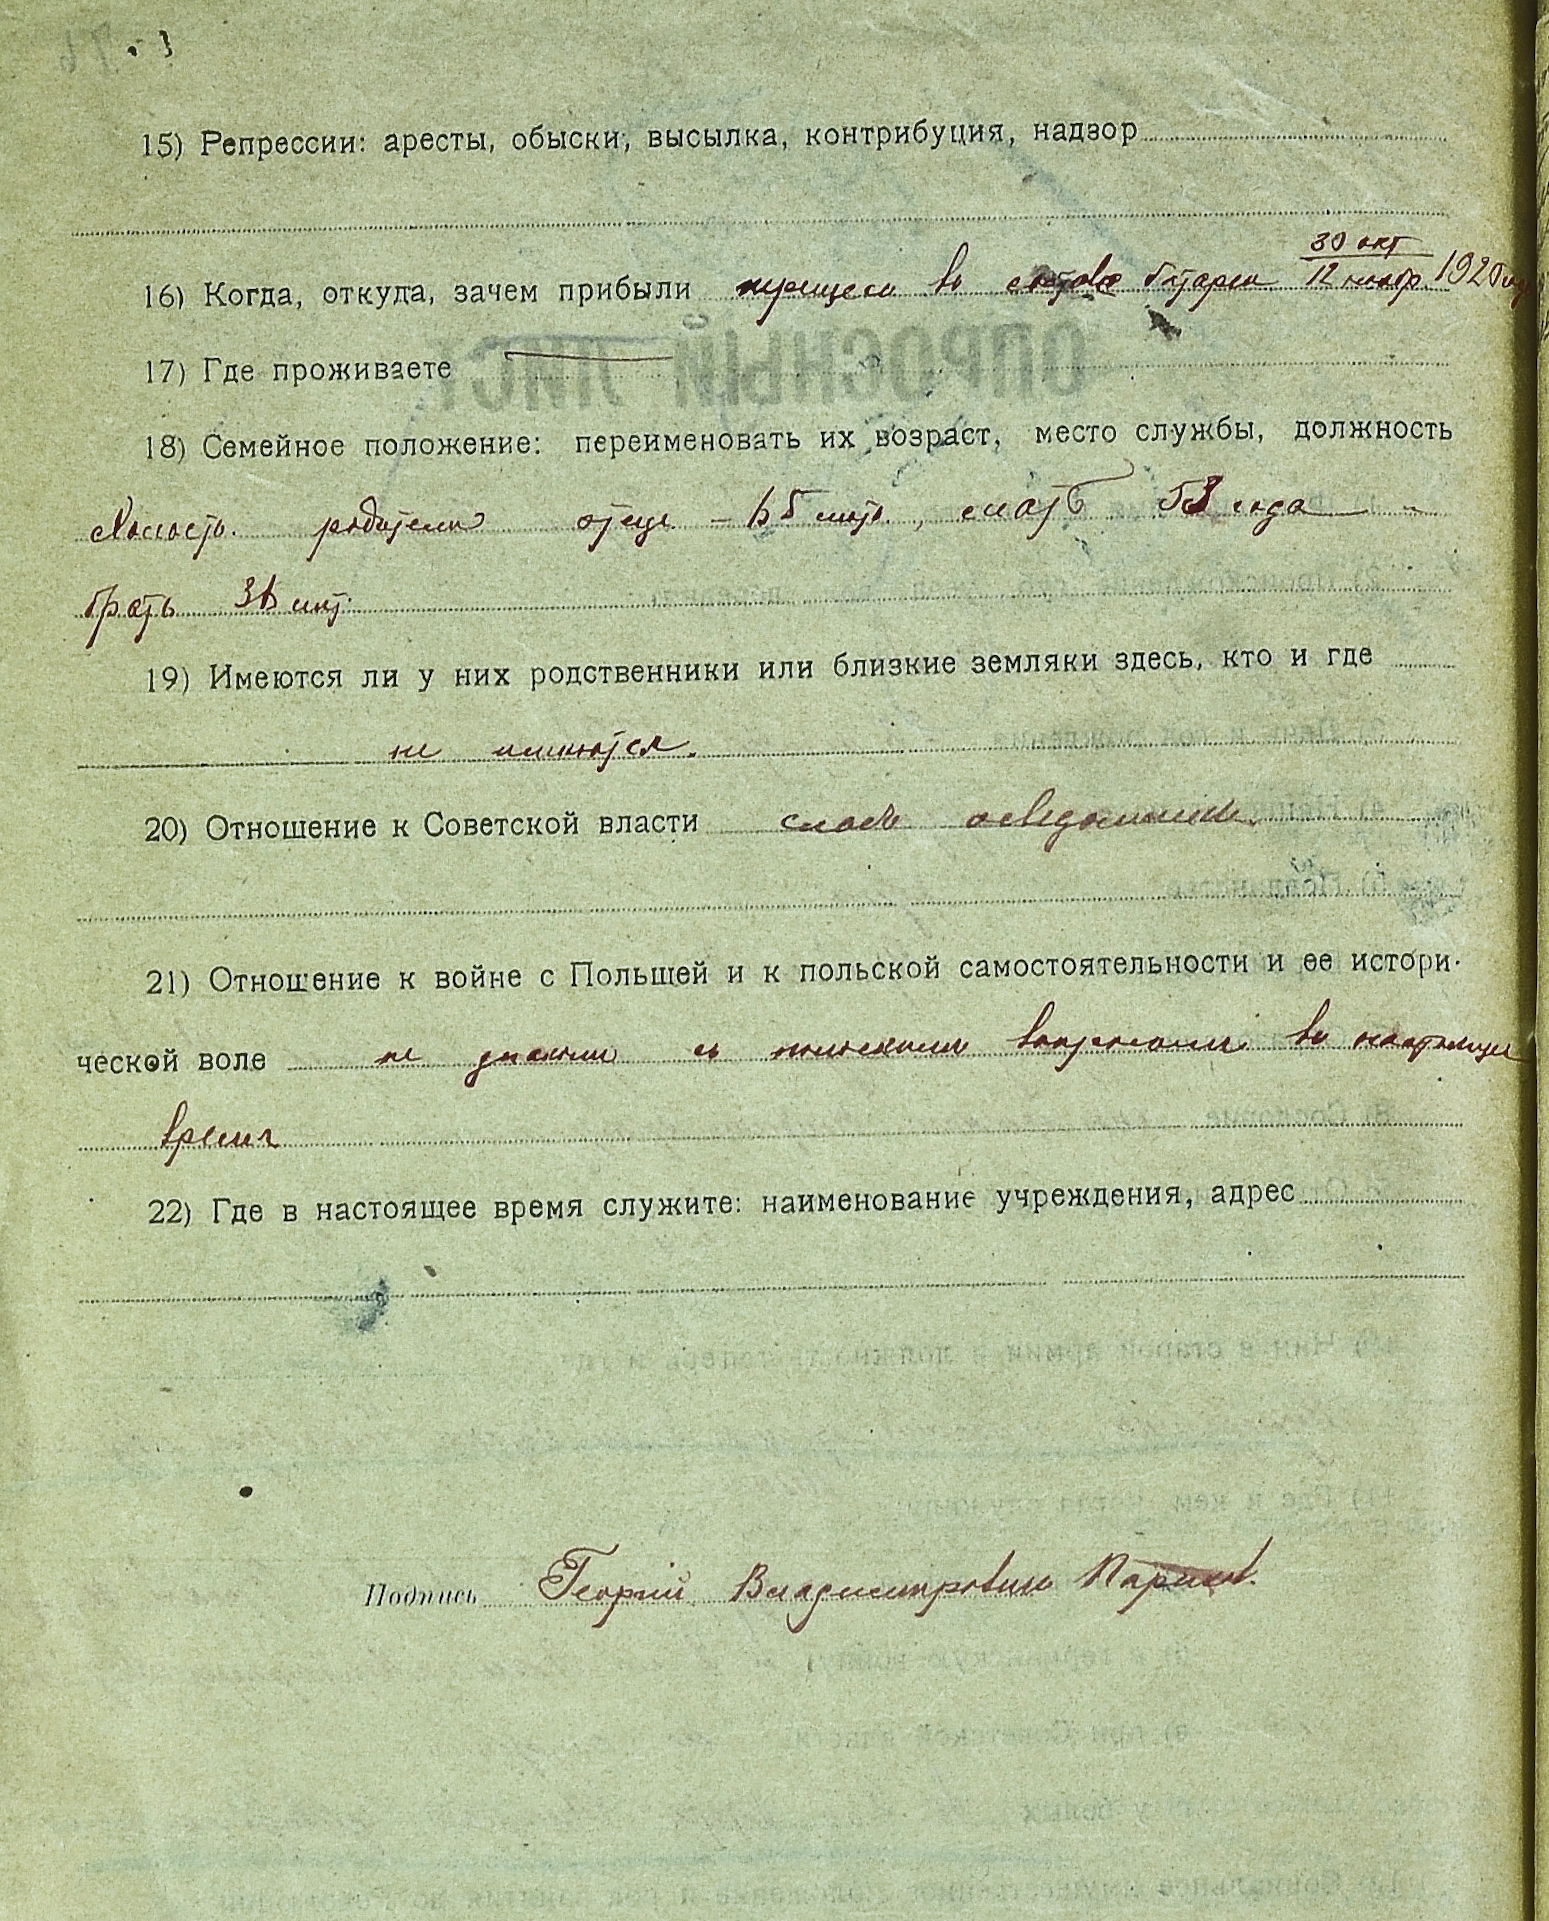 15) Репрессии: аресты, обыски, высылка, контрибуция, надзор
30 окт
16) Когда, откуда, зачем прибыли во составе батареи 12 ноябр 1920 году
17) Где проживаете
18) Семейное положение: переименовать их возраст, место службы, должность
Холостъ. родители отецъ – 65 летъ, мать 53 года –
братъ 36 лет.
19) Имеются ли у них родственники или близкие земляки здесь, кто и где
не имеются.
20) Отношение к Советской власти слабо
21) Отношение к войне с Польшей и к польской самостоятельности и ее истори-
ческой воле не знакомъ съ польскими вопросами въ настоящее
время
22) Где в настоящее время служите: наименование учреждения, адрес
Подпись Георгий Владимирович
ОПРОСНЫЙ ЛИСТ